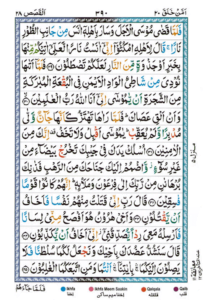 القصص ٢٨
٣٩٠
امن خلق ٢٠
فَلَمَّا قَضٰى مُوْسَى الْاَجَلَ وَسَارَ بِاَهْلِهٖۤ اٰنَسَ مِنْ جَانِبِ الطُّوْرِ
نَارًا ۚ قَالَ لِاَهْلِهِ امْكُثُوْۤا اِنِّیْۤ اٰنَسْتُ نَارًا لَّعَلِّیْۤ اٰتِیْكُمْ مِّنْهَا
بِخَبَرٍ اَوْ جَذْوَةٍ مِّنَ النَّارِ لَعَلَّكُمْ تَصْطَلُوْنَ ﴿۲۹﴾ فَلَمَّاۤ اَتٰىهَا
نُوْدِیَ مِنْ شَاطِئِ الْوَادِ الْاَیْمَنِ فِی الْبُقْعَةِ الْمُبٰرَكَةِ
مِنَ الشَّجَرَةِ اَنْ یّٰمُوْسٰۤى اِنِّیْۤ اَنَا اللّٰهُ رَبُّ الْعٰلَمِیْنَ ﴿۳۰﴾
وَاَنْ اَلْقِ عَصَاكَ ؕ فَلَمَّا رَاٰهَا تَهْتَزُّ كَاَنَّهَا جَآنٌّ وَّلّٰى
مُدْبِرًا وَّلَمْ یُعَقِّبْ ؕ یٰمُوْسٰۤى اَقْبِلْ وَلَا تَخَفْ ۫ اِنَّكَ مِنَ
الْاٰمِنِیْنَ ﴿۳۱﴾ اُسْلُكْ یَدَكَ فِیْ جَیْبِكَ تَخْرُجْ بَیْضَآءَ مِنْ
غَیْرِ سُوْٓءٍ ۫ وَّاضْمُمْ اِلَیْكَ جَنَاحَكَ مِنَ الرَّهْبِ فَذٰنِكَ
بُرْهَانٰنِ مِنْ رَّبِّكَ اِلٰى فِرْعَوْنَ وَمَلَا۠ئِهٖ ؕ اِنَّهُمْ كَانُوْا قَوْمًا
فٰسِقِیْنَ ﴿۳۲﴾ قَالَ رَبِّ اِنِّیْ قَتَلْتُ مِنْهُمْ نَفْسًا فَاَخَافُ
اَنْ یَّقْتُلُوْنِ ﴿۳۳﴾ وَاَخِیْ هٰرُوْنُ هُوَ اَفْصَحُ مِنِّیْ لِسَانًا
فَاَرْسِلْهُ مَعِیَ رِدْاً یُّصَدِّقُنِیْۤ ۫ اِنِّیْۤ اَخَافُ اَنْ یُّكَذِّبُوْنِ ﴿۳۴﴾
قَالَ سَنَشُدُّ عَضُدَكَ بِاَخِیْكَ وَنَجْعَلُ لَكُمَا سُلْطٰنًا فَلَا
یَصِلُوْنَ اِلَیْكُمَا ۚ بِاٰیٰتِنَاۤ ۚ اَنْتُمَا وَمَنِ اتَّبَعَكُمَا الْغٰلِبُوْنَ ﴿۳۵﴾